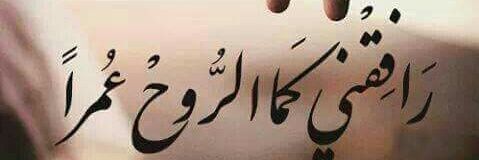 رَافِقْني كَمَا الرُّوحْ عُمراً